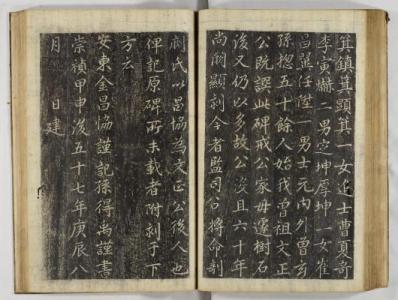 箕鎮箕顗箕一女進士曹夏奇
李寅爀二男定坤厚坤一女崔
昌萬任陞一男士元内外曾玄
孫揔五十餘人始我曾祖文正
公既誤此碑戒公家毋遽樹石
後又仍以多故公沒且六十年
尚闕顯刻今者監司公將命剞
劂氏以昌協為文正公後人也
俾記原碑所未載者附刻于下
方云
安東金昌協謹記孫得尚謹書
崇禎甲申後五十七年庚辰八
月 日建